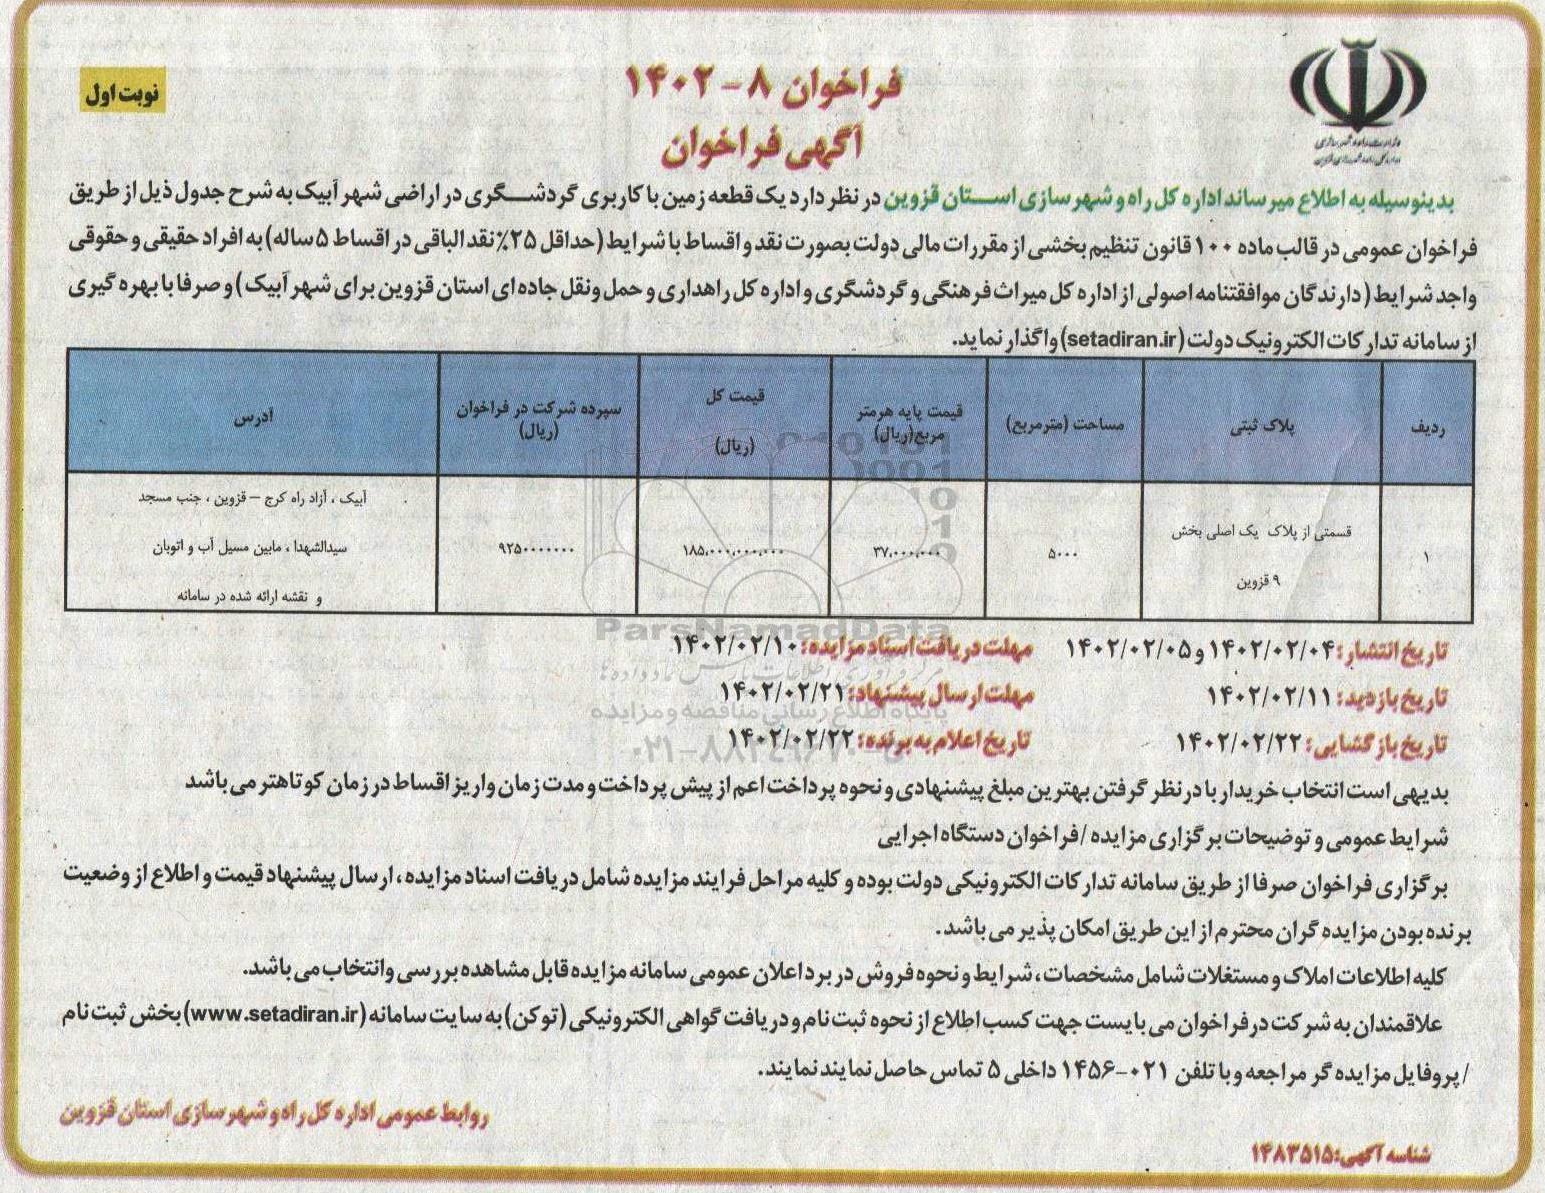 نوبت اول
فراخوان ۸ - ۱۴۰۲
آگهی فراخوان
بدینوسیله به اطلاع میرساند اداره کل راه و شهرسازی استان قزوین در نظر دارد یک قطعه زمین با کاربری گردشگری در اراضی شهر آبیک به شرح جدول ذیل از طریق
فراخوان عمومی در قالب ماده ۱۰۰ قانون تنظیم بخشی از مقررات مالی دولت بصورت نقد و اقساط با شرایط (حداقل ۲۵٪ نقد الباقی در اقساط ۵ ساله) به افراد حقیقی و حقوقی
واجد شرایط (دارندگان موافقتنامه اصولی از اداره کل میراث فرهنگی و گردشگری و اداره کل راهداری و حمل ونقل جاده ای استان قزوین برای شهر آبیک) و صرفا با بهره گیری
از سامانه تدارکات الکترونیک دولت (setadiran.ir) واگذار نماید.
ردیف
پلاک ثبتی
مساحت (مترمربع)
قیمت پایه هرمتر
مربع(ریال)
قیمت کل
(ریال)
سپرده شرکت در فراخوان
(ریال)
ادرس
۱
قسمتی از پلاک یک اصلی بخش
۹ قزوین
۵۰۰۰
۳۷,۰۰۰,۰۰۰
۱۸۵,۰۰۰,۰۰۰,۰۰۰
۹۲۵۰۰۰۰۰۰۰
آبیک ، آزاد راه کرج – قزوین ، جنب مسجد
سیدالشهدا ، مابین مسیل آب و اتوبان
و نقشه ارائه شده در سامانه
ParsNamadData
پایگاه اطلاع رسانی مناقصه و مزایده
تاریخ انتشار: ۱۴۰۲/۰۲/۰۴ و ۱۴۰۲/۰۲/۰۵ مهلت دریافت اسناد مزایده: ۱۴۰۲/۰۲/۱۰
تاریخ بازدید: ۱۴۰۲/۰۲/۱۱ مهلت ارسال پیشنهاد: ۱۴۰۲/۰۲/۲۱
تاریخ بازگشایی: ۱۴۰۲/۰۲/۲۲ تاریخ اعلام به برنده: ۱۴۰۲/۰۲/۲۲
بدیهی است انتخاب خریدار با در نظر گرفتن بهترین مبلغ پیشنهادی و نحوه پرداخت اعم از پیش پرداخت و مدت زمان واریز اقساط در زمان کوتاهتر می باشد
شرایط عمومی و توضیحات برگزاری مزایده /فراخوان دستگاه اجرایی
برگزاری فراخوان صرفا از طریق سامانه تدارکات الکترونیکی دولت بوده و کلیه مراحل فرایند مزایده شامل دریافت اسناد مزایده، ارسال پیشنهاد قیمت و اطلاع از وضعیت
برنده بودن مزایده گران محترم از این طریق امکان پذیر می باشد.
کلیه اطلاعات املاک و مستغلات شامل مشخصات، شرایط و نحوه فروش در برد اعلان عمومی سامانه مزایده قابل مشاهده بررسی وانتخاب می باشد.
علاقمندان به شرکت در فراخوان می بایست جهت کسب اطلاع از نحوه ثبت نام و دریافت گواهی الکترونیکی (توکن) به سایت سامانه (www.setadiran.ir) بخش ثبت نام
/پروفایل مزایده گر مراجعه و با تلفن ۰۲۱-۱۴۵۶ داخلی ۵ تماس حاصل نمایند نمایند.
روابط عمومی اداره کل راه و شهرسازی استان قزوین
شناسه آگهی: ۱۴۸۳۵۱۵